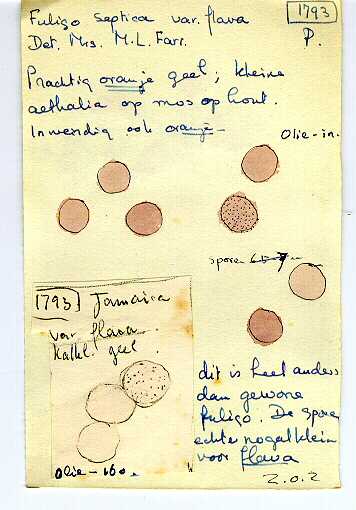 Fuligo septica var. flava
1793
Det. Mrs. M.L. Farr.
P.
Prachtig oranje geel; kleine
aethalia op mos op hout.
Inwendig ook oranje-
Olie-in.
sporen
1793 Jamaica
var flava.
Kalkl. geel.
Olie-160.
dit is heel anders
dan gewone
fuligo. De sporen
echter nogal klein
voor flava
Z.O.Z